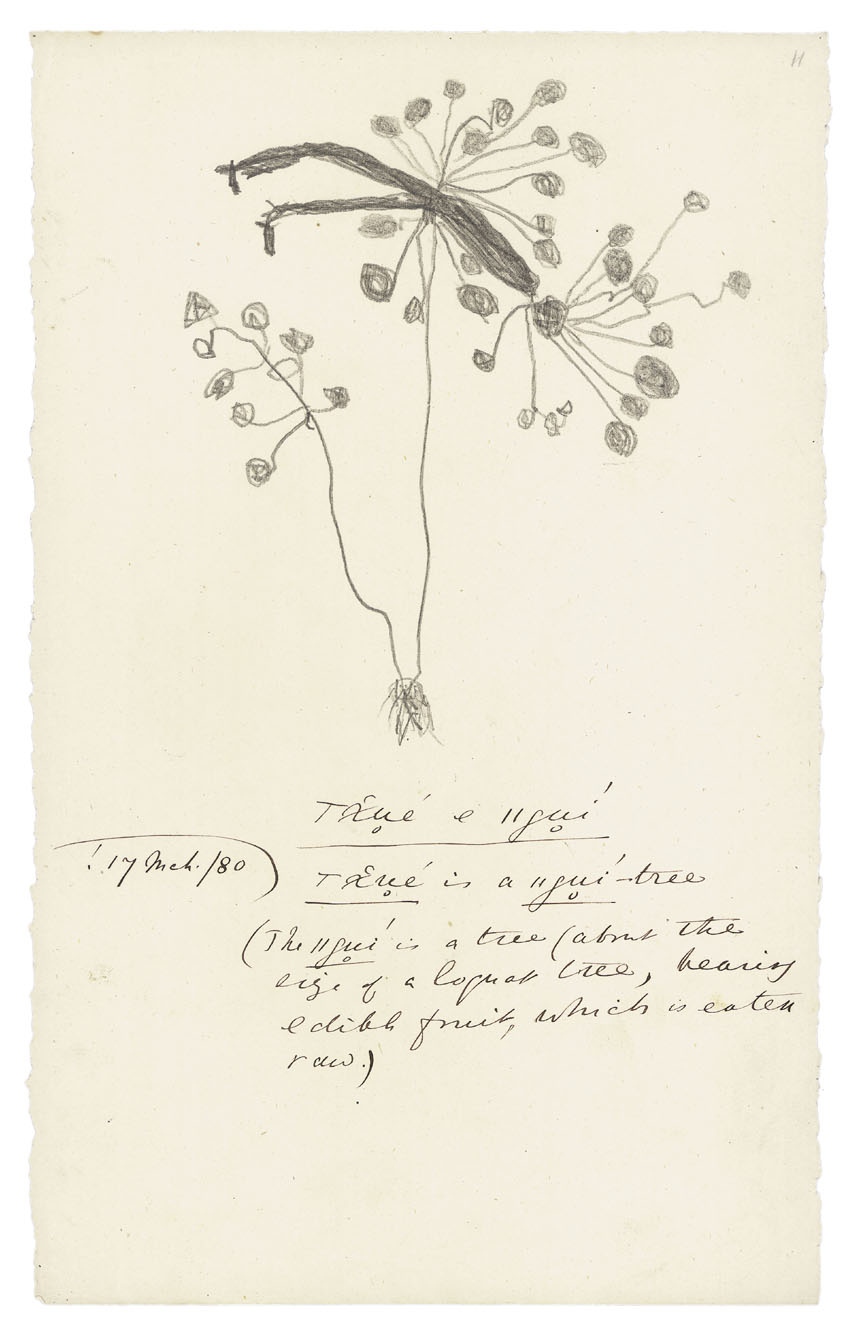 11
Tăn̥é e ǁgu̥í
! 17 Mch./80)
Tăn̥é is a ǁgu̥í-tree
(The ǁgu̥í is a tree (about the
size of a loquat tree, bearing
edible fruit, which is eaten
raw.)